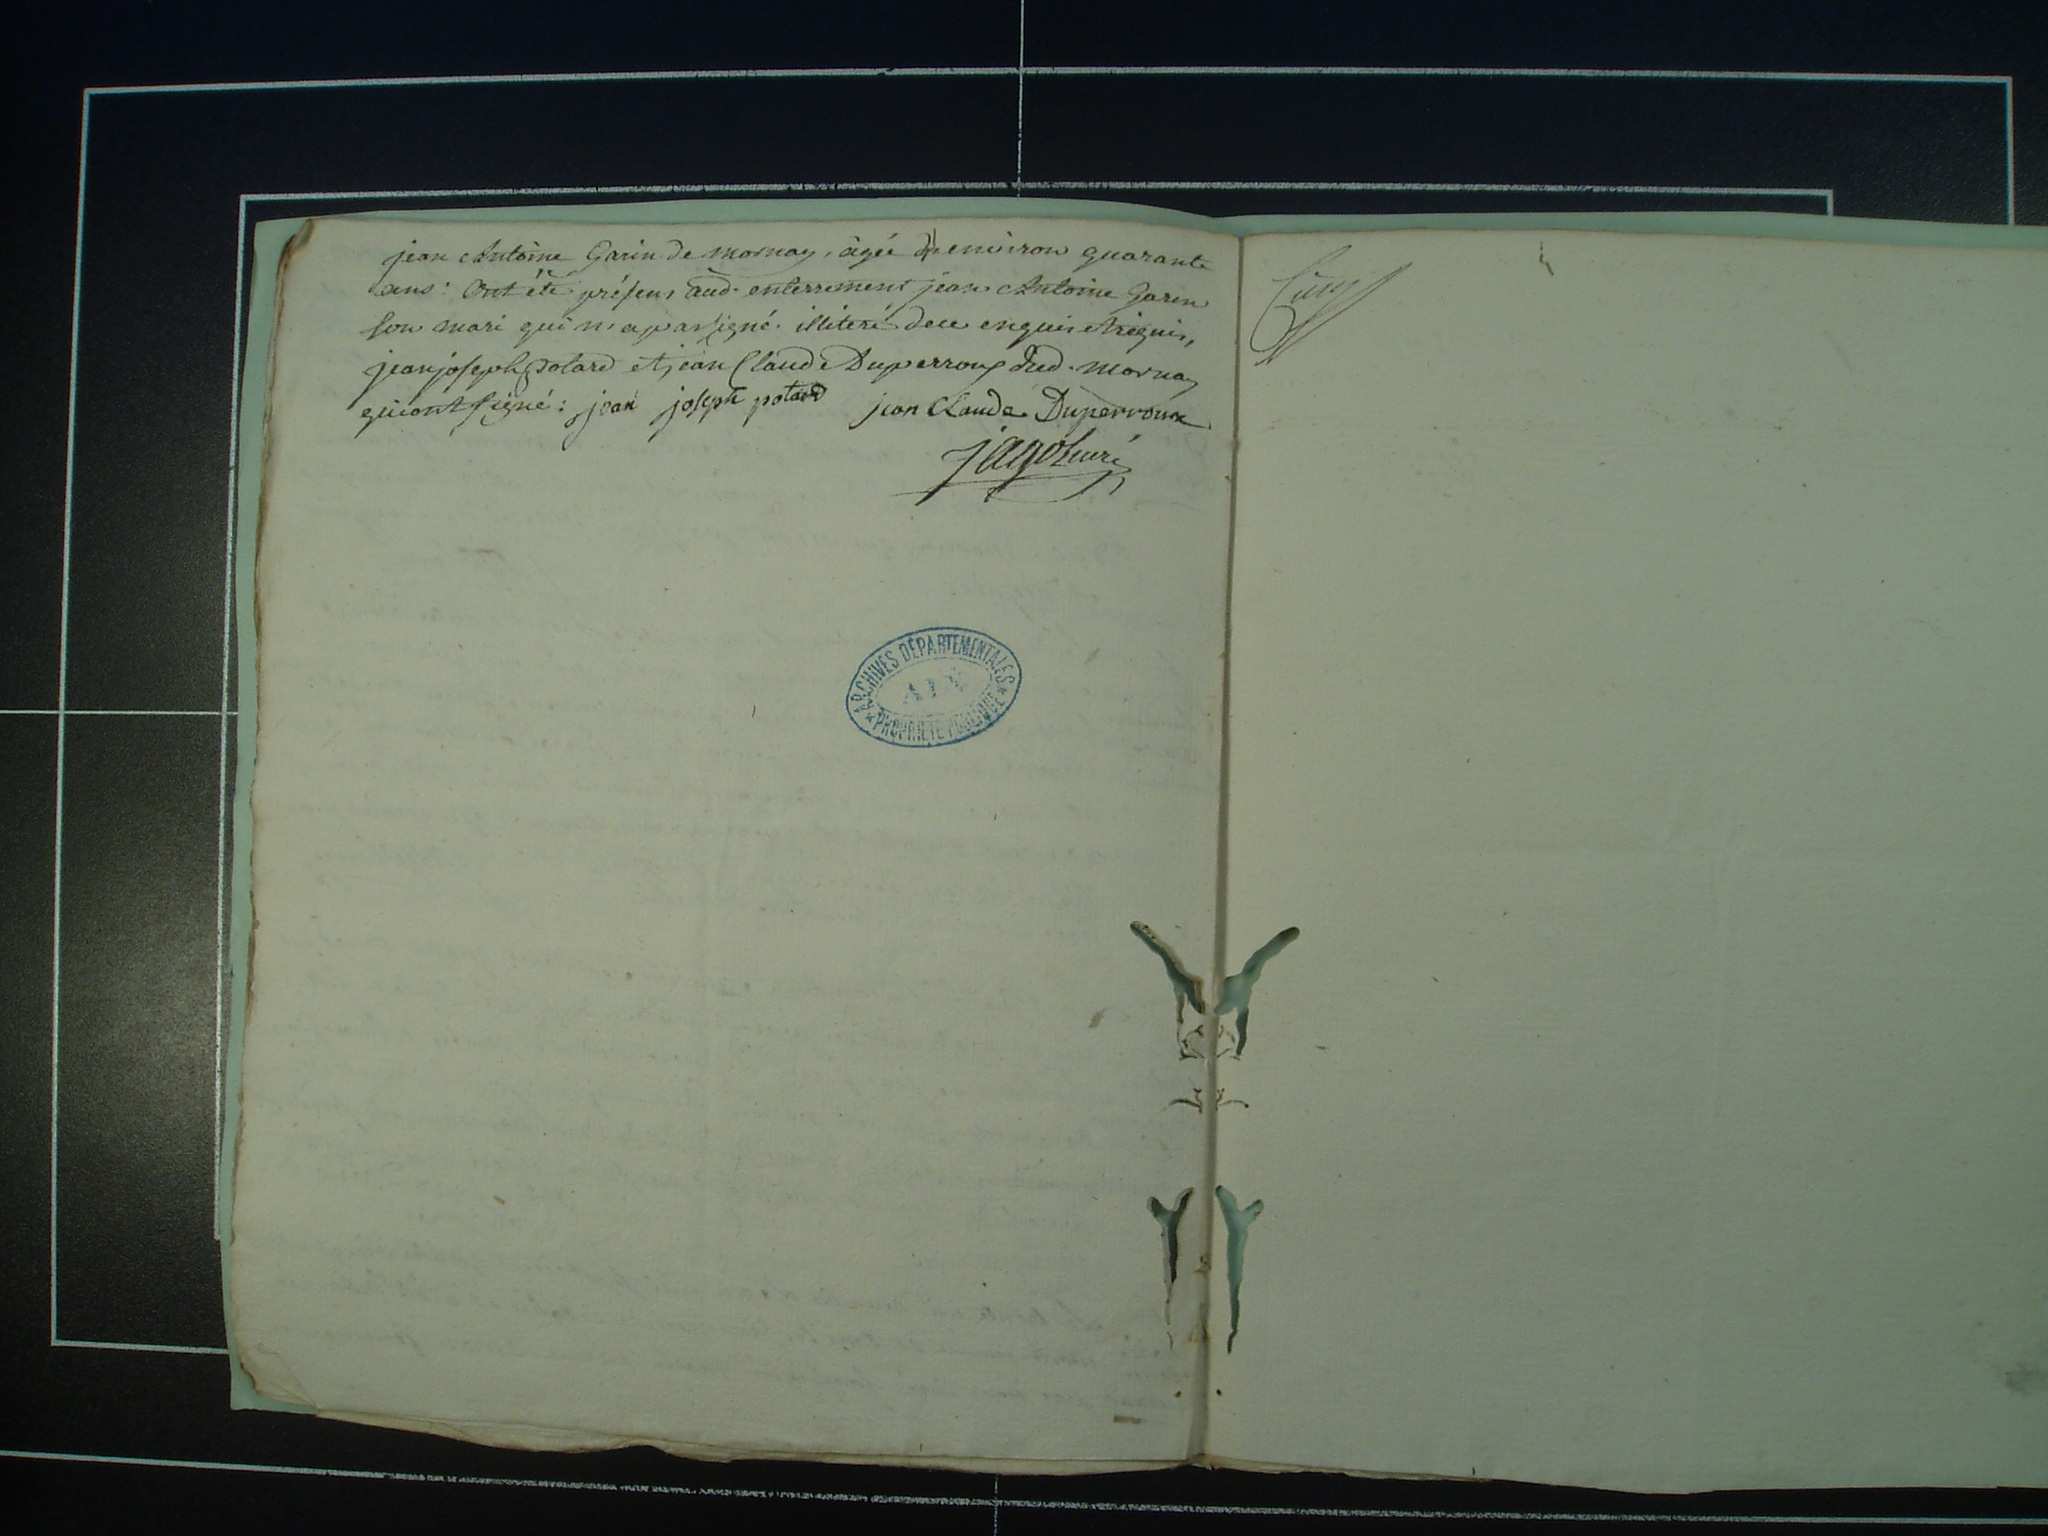 jean Antoine Garin de mornay, agée d'environ quarante
ans: Ont été présens aud. enterrement jean Antoine Garin
son mari qui n'a pas signé illiteré de ce enquis et réquis,
jean joseph Polard et jean Claude Duperroux dud. mornay
qui ont signé: jean joseph polard jean Claude Duperroux
jagot curé
ARCHIVES DÉPARTEMENTALES
AIN
PROPRIÉTÉ PUBLIQUE